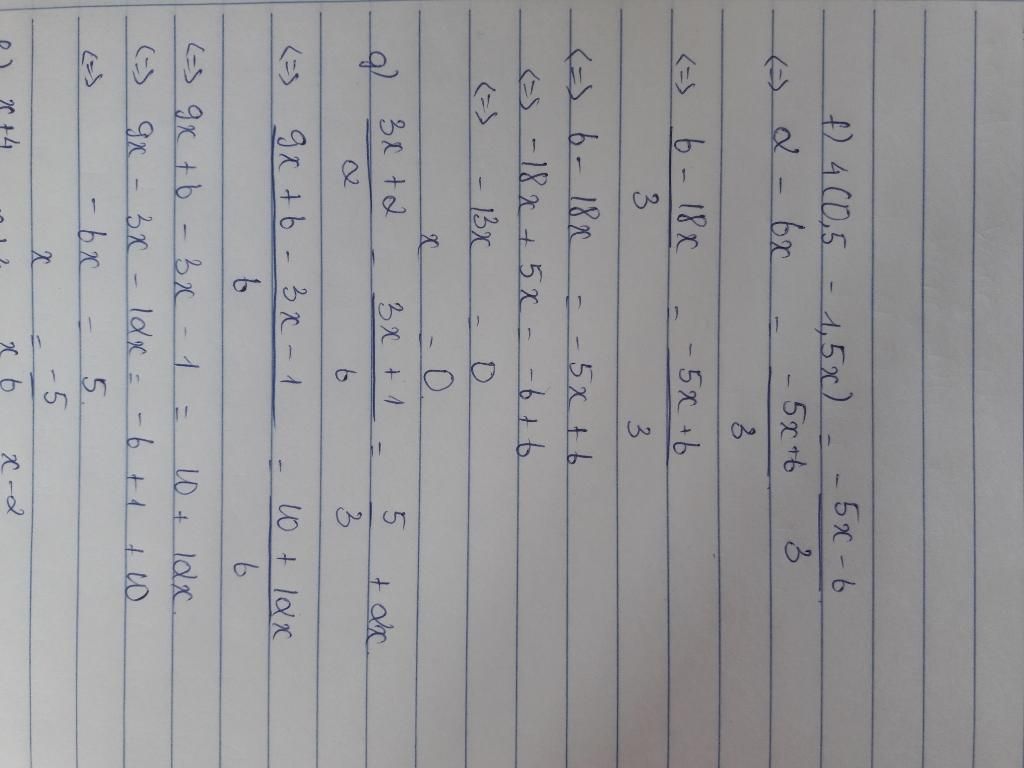 f) 4(0,5 - 1,5x) = -5x-6 / 3
<=> 2 - 6x = -5x+6 / 3
<=> 6-18x / 3 = -5x+6 / 3
<=> 6-18x = -5x+6
<=> -18x+5x = -6+6
<=> -13x = 0
x = 0
g) 3x+2 / 2 - 3x+1 / 6 = 5 / 3 + 2x
<=> 9x+6-3x-1 / 6 = 10+12x / 6
<=> 9x+6-3x-1 = 10+12x
<=> 9x-3x-12x = -6+1+10
<=> -6x = 5
x = -5
x+4 x 6 x-2